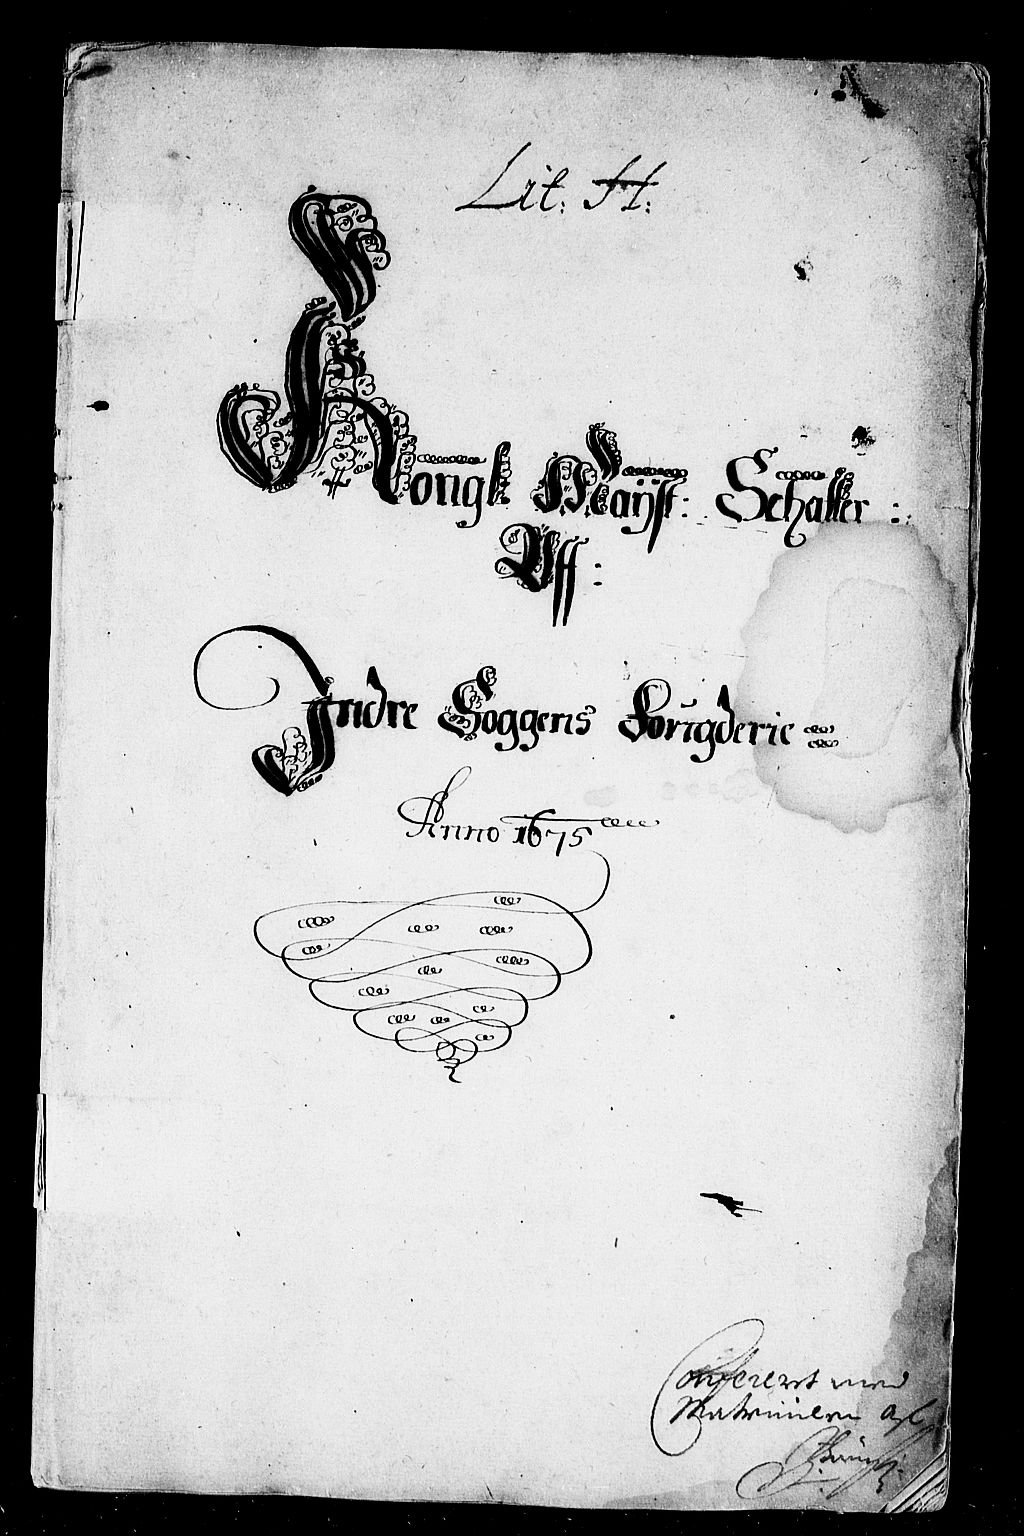 Lit: H:
Kongl: Maÿst: Schatter:
Aff:
Indre Soggens Sorigderie
Anno 1675
Confereret med
Matriculen